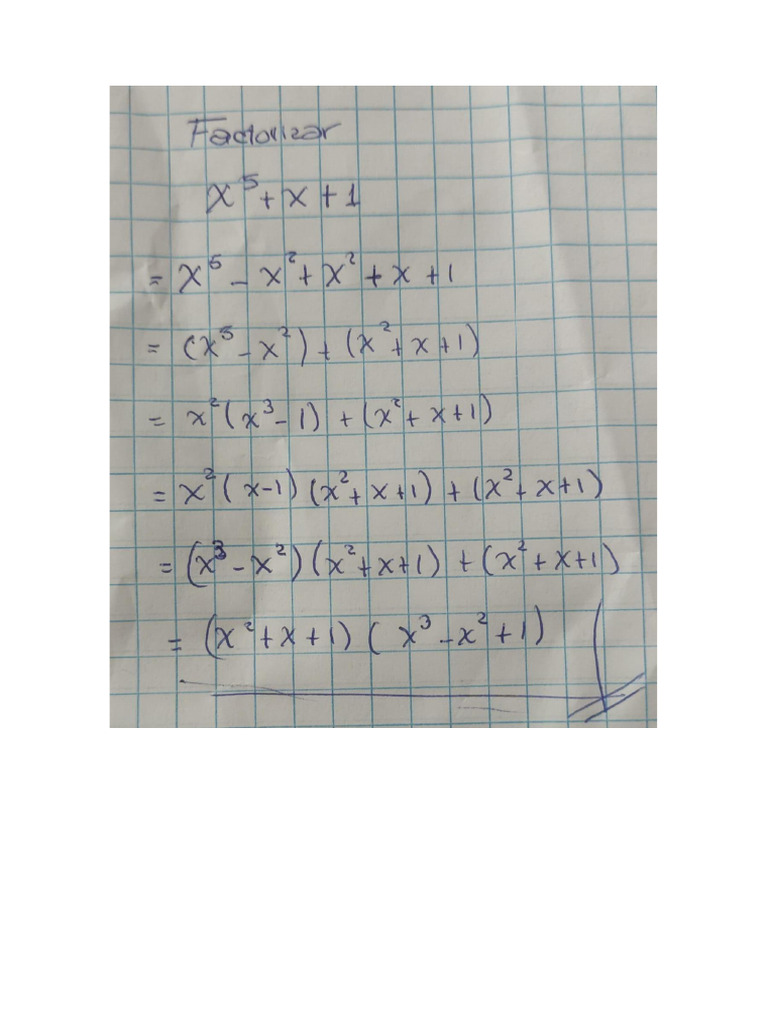 Factorizar
x⁵ + x + 1
= x⁵ - x² + x² + x + 1
= (x⁵ - x²) + (x² + x + 1)
= x² (x³ - 1) + (x² + x + 1)
= x² (x - 1) (x² + x + 1) + (x² + x + 1)
= (x³ - x²) (x² + x + 1) + (x² + x + 1)
= (x² + x + 1) (x³ - x² + 1)